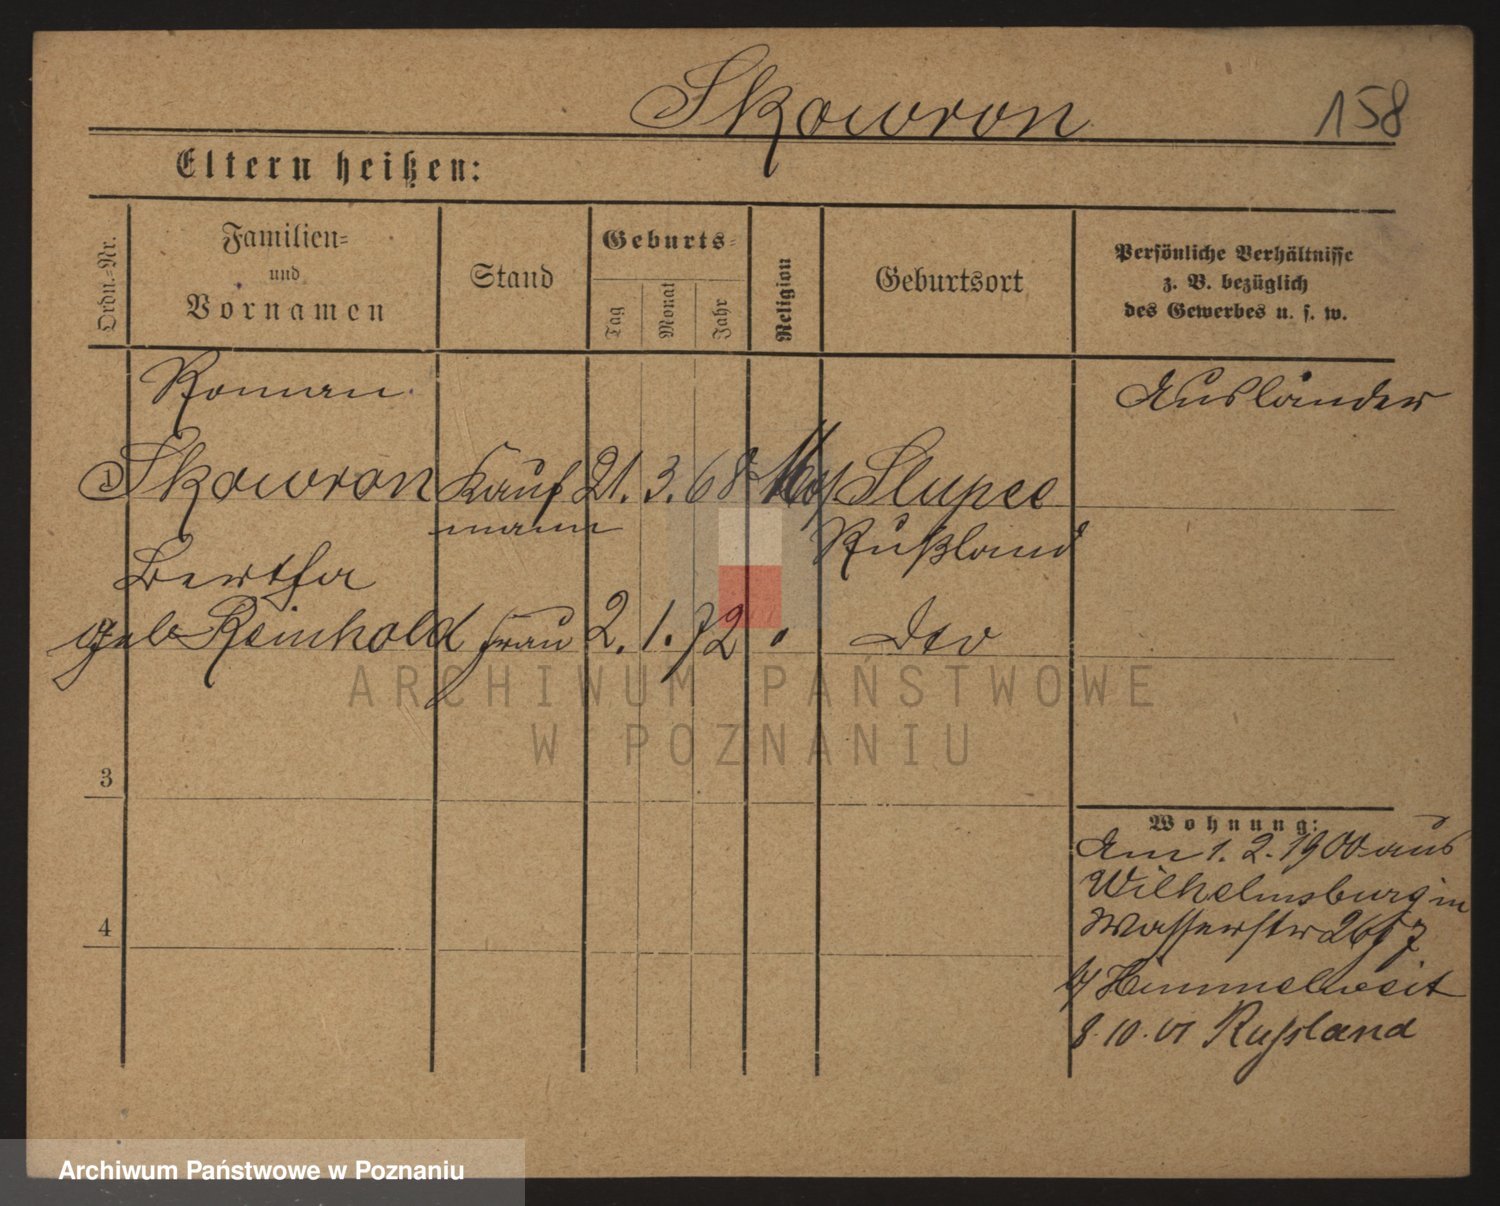 Skowron
158
Eltern heißen:
Ordn.-Nr.
Familien-
und
Vornamen
Stand
Geburts-
Tag
Monat
Jahr
Religion
Geburtsort
Persönliche Verhältnisse
z. B. bezüglich
des Gewerbes u. s. w.
Roman
Ausländer
Skowron Kauf 21. 3. 68 Mos Slupce
mann Rußland
Bertha
geb Reinhold Frau 2. 1. 72 " Dto
ARCHIWUM PAŃSTWOWE
W POZNANIU
3
Wohnung:
Am 1. 2. 1900 aus
Wilhelmsburg in
Wasserstr
4
b/ Himmelweit
8. 10. 01 Russland
Archiwum Państwowe w Poznaniu